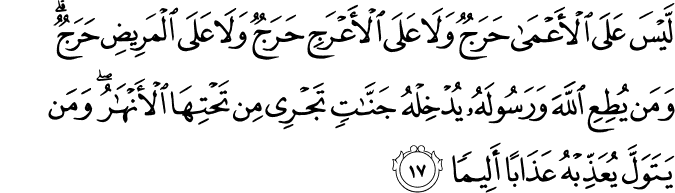 لَّيْسَ عَلَى ٱلْأَعْمَىٰ حَرَجٌ وَلَا عَلَى ٱلْأَعْرَجِ حَرَجٌ وَلَا عَلَى ٱلْمَرِيضِ حَرَجٌ ۗ
وَمَن يُطِعِ ٱللَّهَ وَرَسُولَهُۥ يُدْخِلْهُ جَنَّـٰتٍ تَجْرِى مِن تَحْتِهَا ٱلْأَنْهَـٰرُ ۖ وَمَن
يَتَوَلَّ يُعَذِّبْهُ عَذَابًا أَلِيمًا ١٧